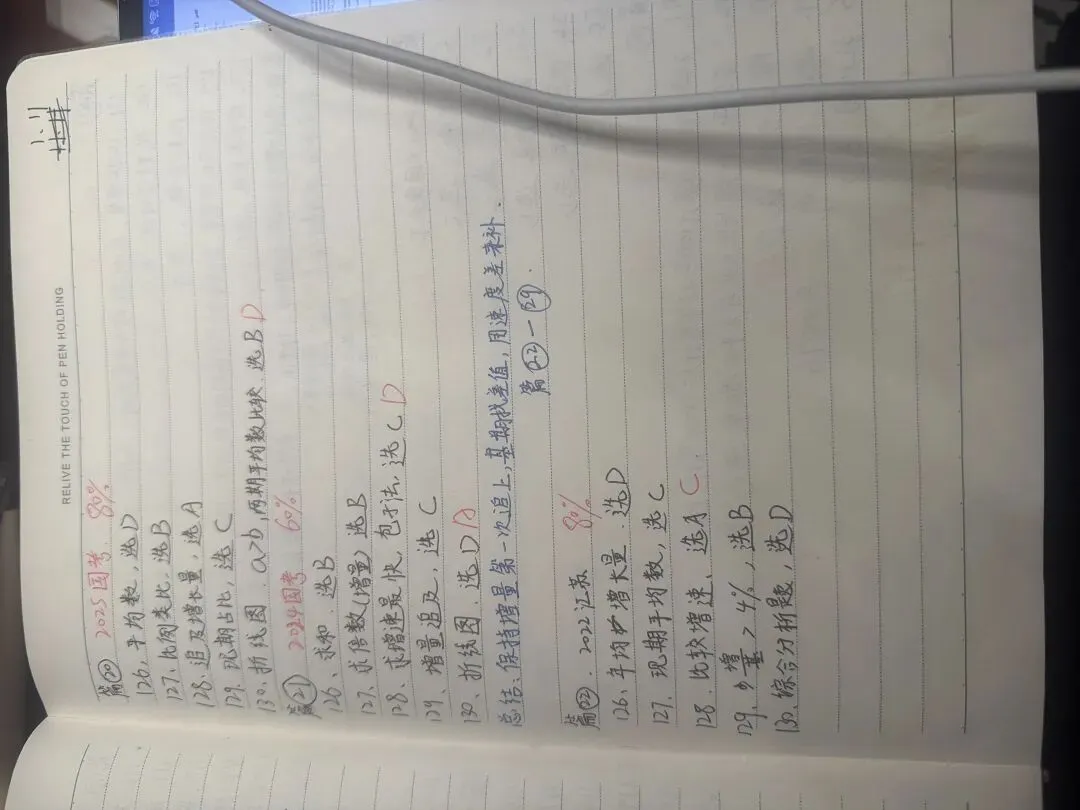 RELIVE THE TOUCH OF PEN HOLDING
1.11
篇⑳ 2025国考 80%
126、平均数,选D
127、比例类比,选B
128、追及增长量,选A
129、现期占比,选C
130、折线图.a>b,两期平均数比较.选B D
篇㉑ 2024国考 60%
126、求和.选B
127、求倍数(增量)选B
128、求增速最快,包子法,选C D
129、增量追及,选C
130、折线图.选D A
总结:保持增量第一次追上,基期找差值,用速度差来补.
篇㉒—㉙.
篇㉒.2022江苏 80%
126、年均增长量.选D
127、现期平均数,选C
128、比较增速、选A C.
129、增/基>4%,选B
130、综合分析题,选D